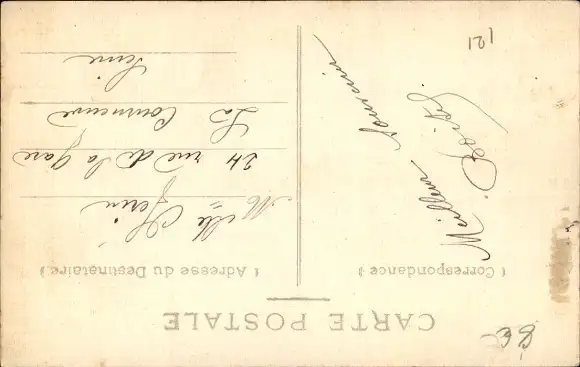 CARTE POSTALE
( Correspondance )
( Adresse du Destinataire )
Meilleur souvenir
Melle
24 rue de la gare
La Courneuve
Seine
121